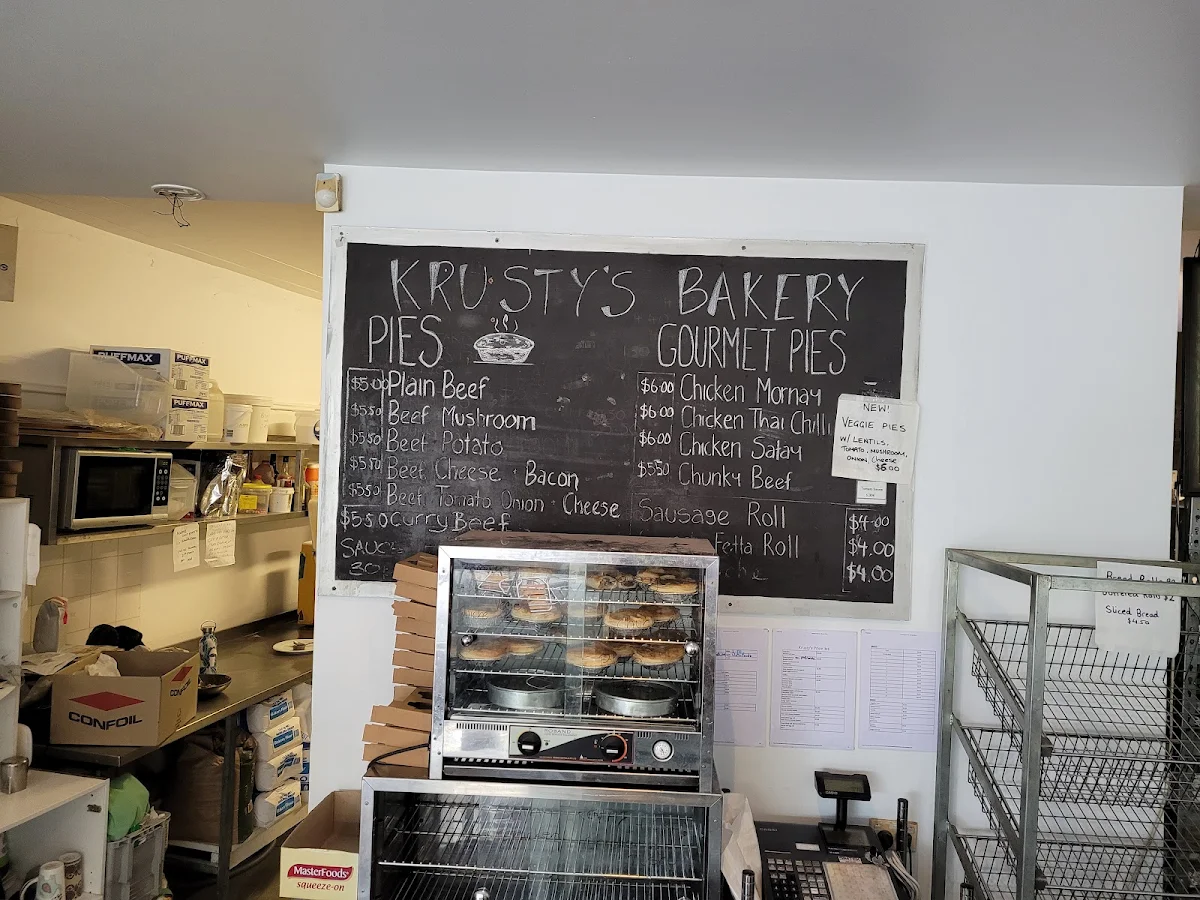 KRUSTY'S BAKERY
PIES
$5.00 Plain Beef
$5.50 Beef Mushroom
$5.50 Beef Potato
$5.50 Beef Cheese + Bacon
$5.50 Beef Tomato Onion + Cheese
$5.50 Curry Beef
30
GOURMET PIES
$6.00 Chicken Mornay
$6.00 Chicken Thai Chilli
$6.00 Chicken Satay
$5.50 Chunky Beef
Sausage Roll $4.00
Fetta Roll $4.00
$4.00
NEW!
VEGGIE PIES
W/ LENTILS,
TOMATO, MUSHROOM,
ONION, Cheese
$6.00
PUFFMAX
PUFFMAX
PUFFMAX
CONFOIL
CONFOIL
MasterFoods
squeeze-on
Sliced Bread
$4.50